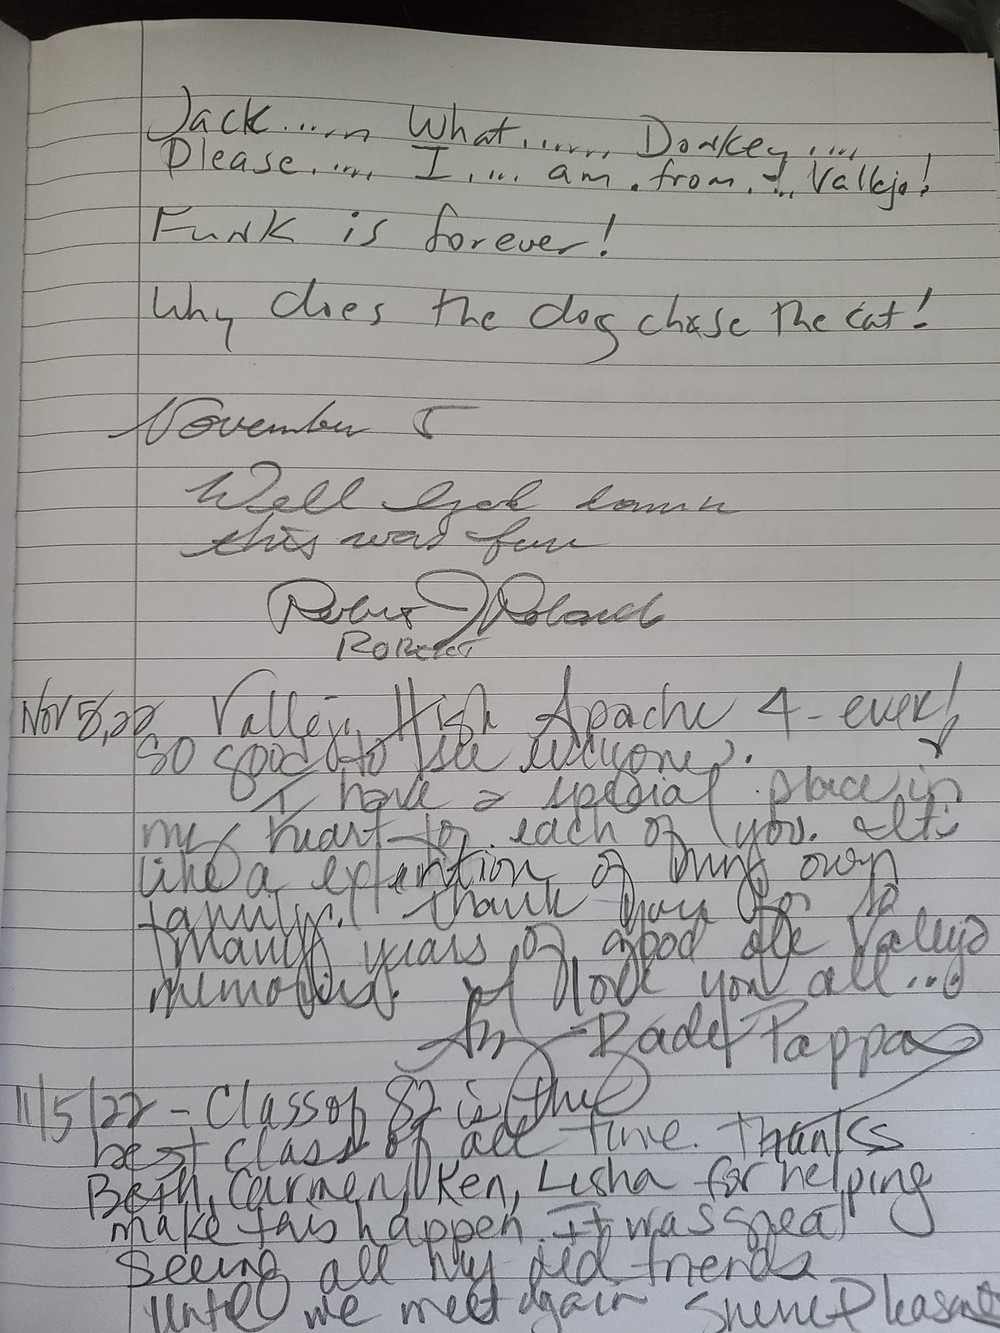 Jack...... What...... Donkey....
Please..... I.... am . from.... Vallejo!
Funk is forever!
Why does the dog chase the cat!
November 5
Well God damn
this was fun
Robert J Roland
ROBERT
Nov 5, 22 Vallejo High Apache 4-ever!
so good to see everyone.
I have a special place in
my heart for each of you. It's
like a extention of my own
family. Thank you for so
many years of good ole Vallejo
memories. I love you all...
Bader Pappas
11/5/22 - Class of 82 is the
best class of all time. Thanks
Beth, Carmen, Ken, Lisha for helping
make this happen. It was great
Seeing all my old friends
Until we meet again Pleasant